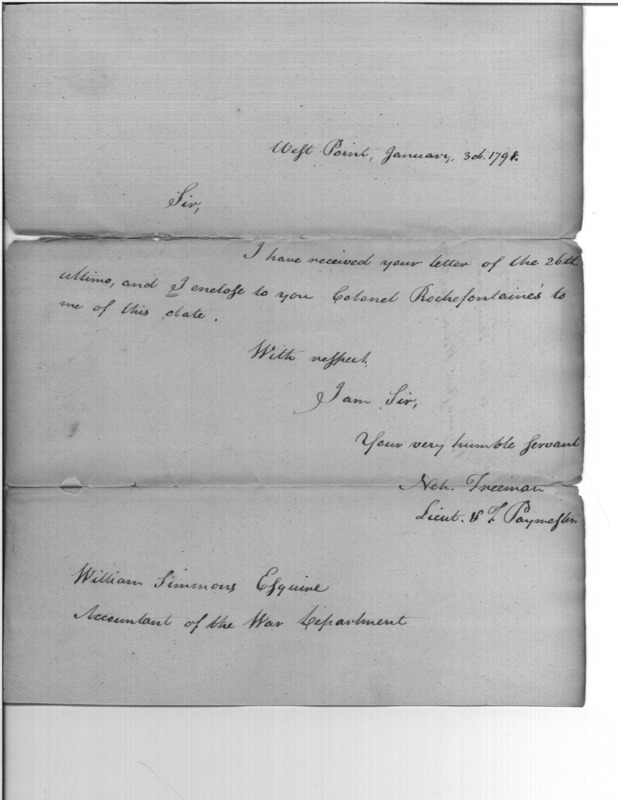 West Point, January, 3d. 1798.
Sir,
I have received your letter of the 26th
ultimo, and I enclose to you Colonel Rochefontaine's to
me of this date.
With respect
I am Sir,
Your very humble servant
Neh. Freeman
Lieut. & Paymaster
William Simmons Esquire
Accountant of the War Department